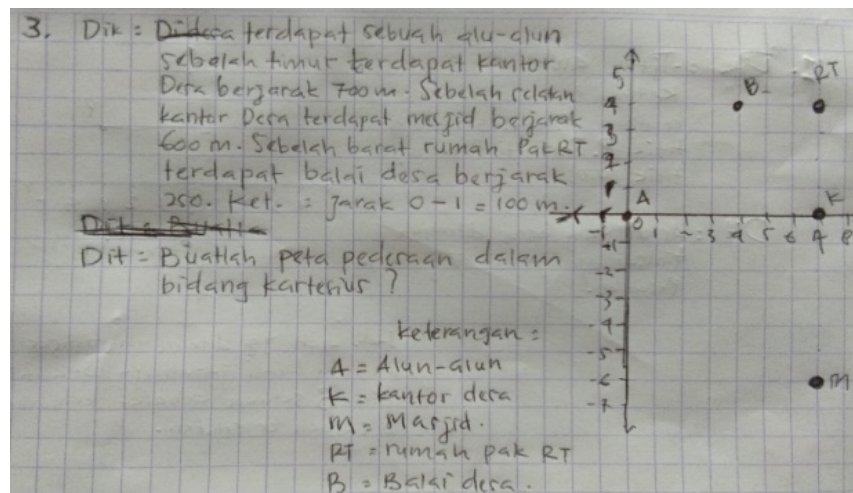 3. Dik = Didesa terdapat sebuah alu-alun
sebelah timur terdapat kantor
Desa berjarak 700 m. Sebelah selatan
kantor Desa terdapat mesjid berjarak
600 m. Sebelah barat rumah Pak RT
terdapat balai desa berjarak
250. Ket. = jarak 0-1 = 100 m.
Dit = Buatlah peta pedesaan dalam
bidang kartesius ?
Keterangan =
A = Alun-alun
K = kantor desa
M = Masjid.
RT = rumah pak RT
B = Balai desa.
5
RT
B
4
3
2
1
A
K
-1 0 1 2 3 4 5 6 7 8
-1
-2
-3
-4
-5
-6
M
-7